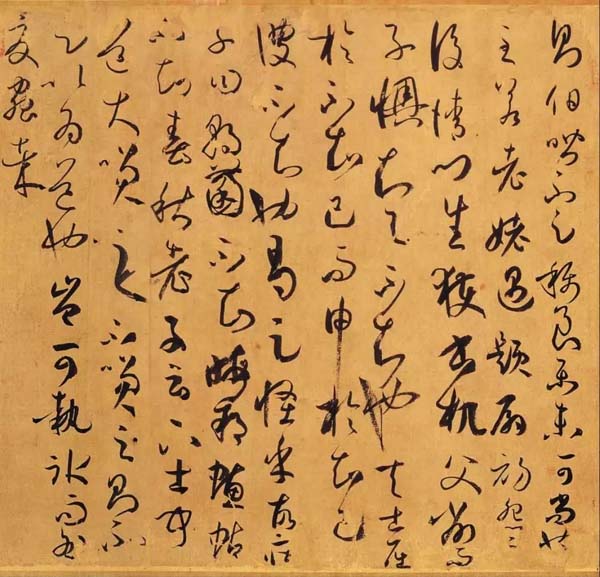 則伯喈不足稱良樂未可尚也
至若老姥遇題扇初怨而
後請門生獲書机父削而
子懊知與不知也夫士屈
於不知己而申於知己
彼不知也曷足怪乎故莊
子曰朝菌不知晦朔蟪蛄
不知春秋老子云下士聞
道大笑之不笑之則不
足以為道也豈可執冰而咎
夏蟲哉